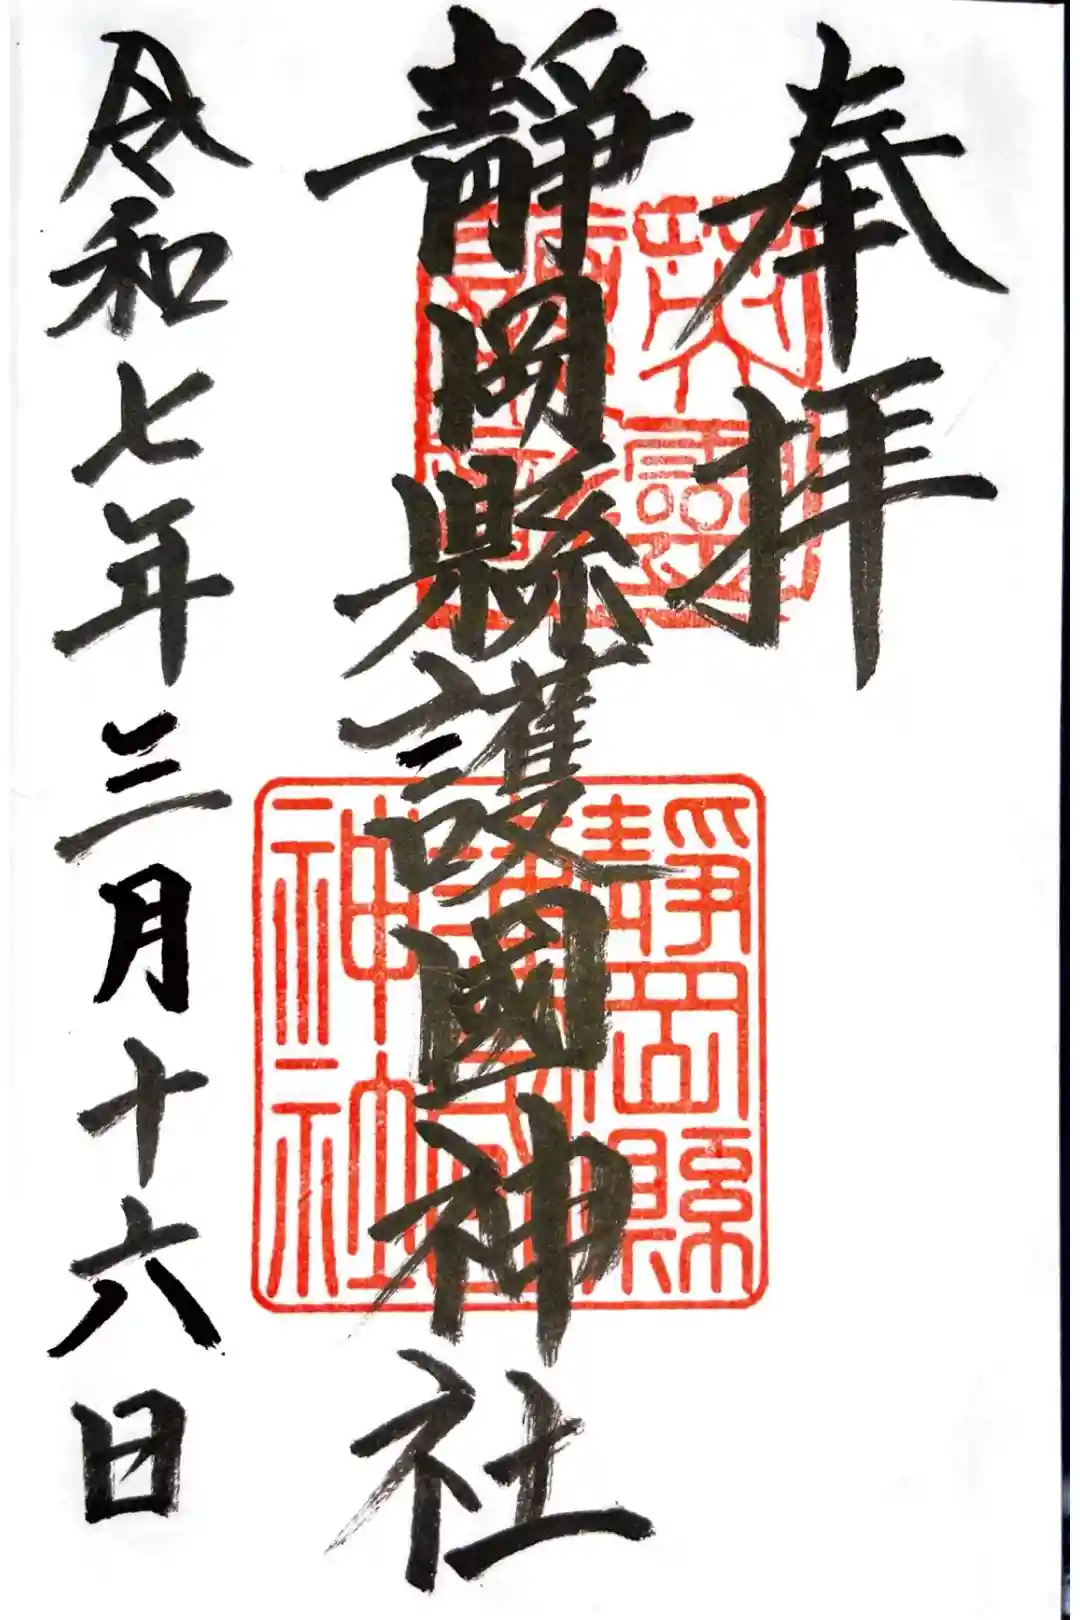 奉拝
靜岡縣護國神社
令和七年三月十六日
靜岡縣
護國
神社
英靈